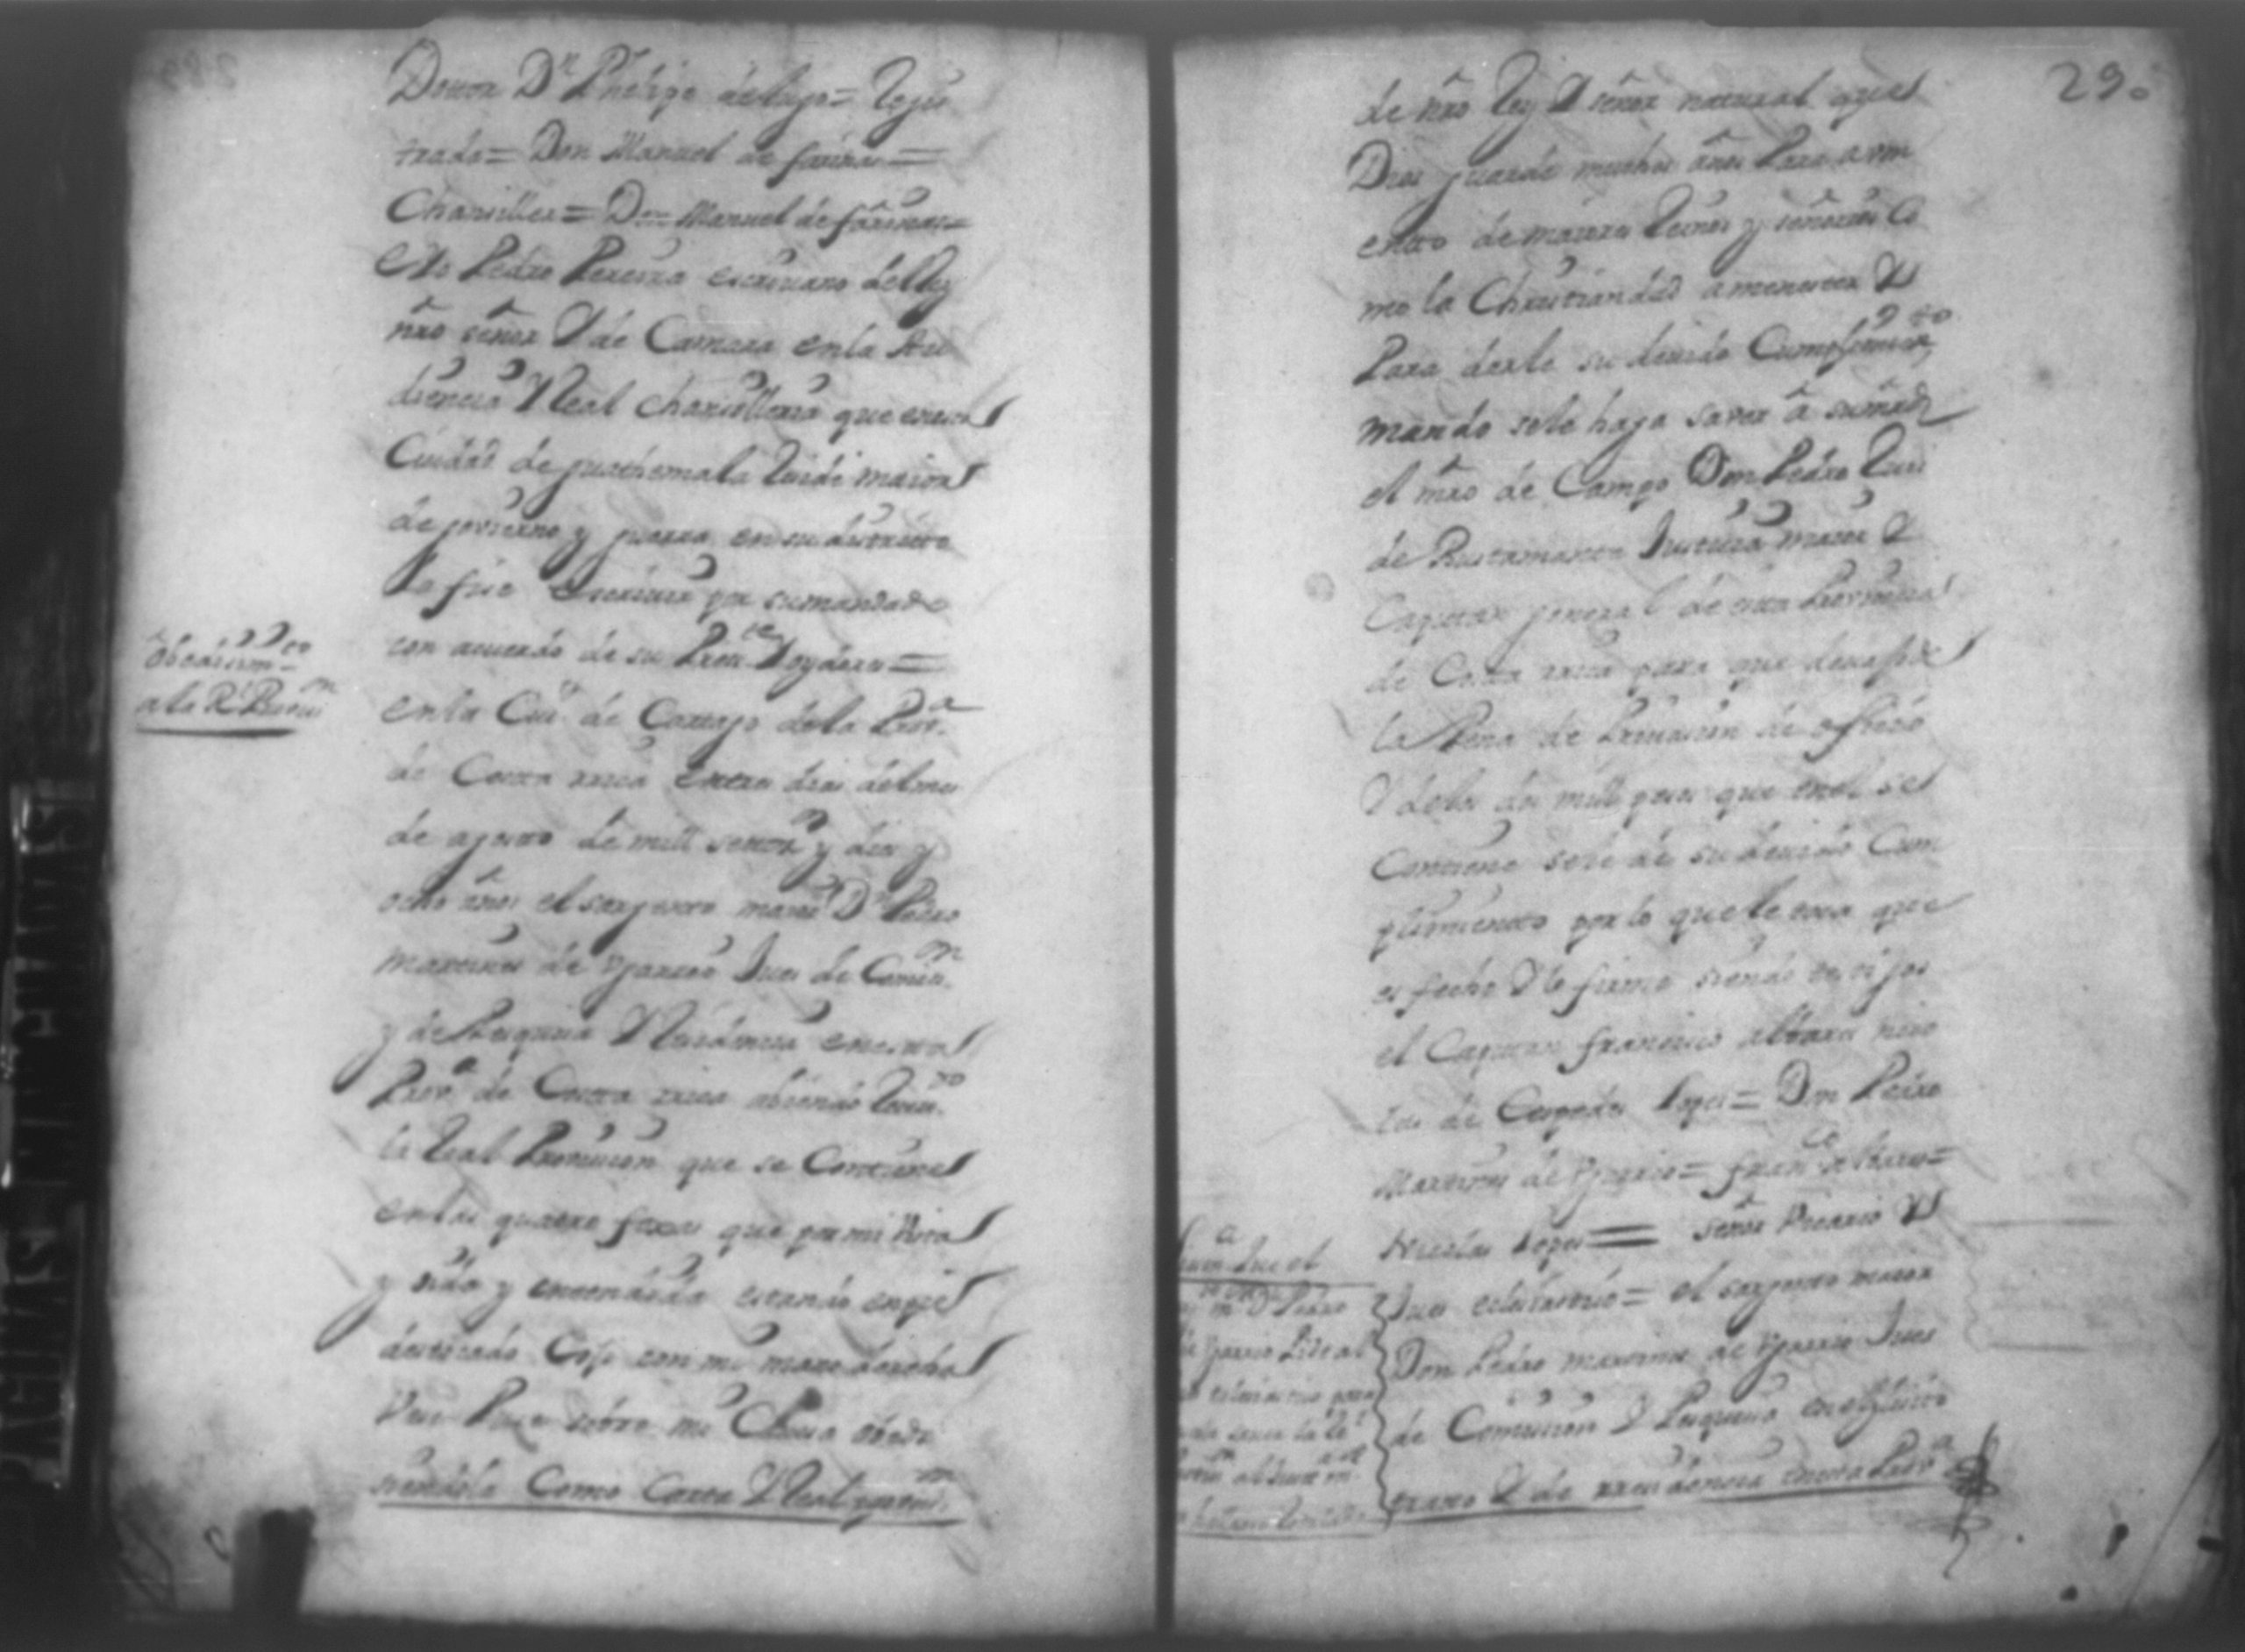 Doctor Dn Phelipe de lugo = Regis
trada = Don Manuel de farinas =
Chansiller = Don Manuel de farinas =
E Yo Pedro Pereira escriuano del Rey
nro señor Y de Camara en la Au
diencia Y Real Chansilleria que reside
Ciudad de guathemala Y maior
de gouierno y guerra en su districto
la fise escriuir por su mandado
con acuerdo de su Press.te Y oydores =
en la Ciu.d de Cartago de la Prov.a
de Costa rrica en tres dias del mes
de agosto de mill setez.s y dies y
ocho años el sargento maior Dn Pedro
martines de Ygarrio Jues de Comiss.n
y de Pesquisa Y Residencia en esta
Prov.a de Costa rrica abiendo Reciu.do
la Real Prouision que se Contiene
en las quatro foxas que por mi Vista
y oida y entendida estando en pie
destocado Coji con mi mano derecha
Vese Puse sobre mi Cauesa obede
siendola Como Carta Y Real prouis.n
obedecim.to
a la Rl Prouis.n
29
de nro Rey Y señor natural que
Dios guarde muchos años Para aum
ento de maiores Reinos y señorios Co
mo la Christiandad a menester Y
Para darle su deuido Cumplimien.to
mando se le haga sauer â su md
el mro de Campo Don Pedro Ruis
de Bustamante Justicia maior Y
Capitan general de esta Prouincia
de Costa rrica para que deuajo de
la Pena de Priuasion de ofisio
Y de los dos mill pesos que en el se
Contiene se le de su deuido Cum
plimiento por lo que le toca que
es fecho Y lo firme siendo testigos
el Capitan francisco albares nico
las de Cespedes lopes = Don Pedro
Martines de Ygarrio = fran.co albares =
Nicolas lopes = señor Vicario Y
Jues eclesiastico = el sargento maior
Don Pedro martines de Ygarrio Jues
de Comision Y Pesquisa en el
Y de rresidencia en esta Prov.a
Jues el
Dn Pedro
Ygarrio Pide al
eclesiastico para